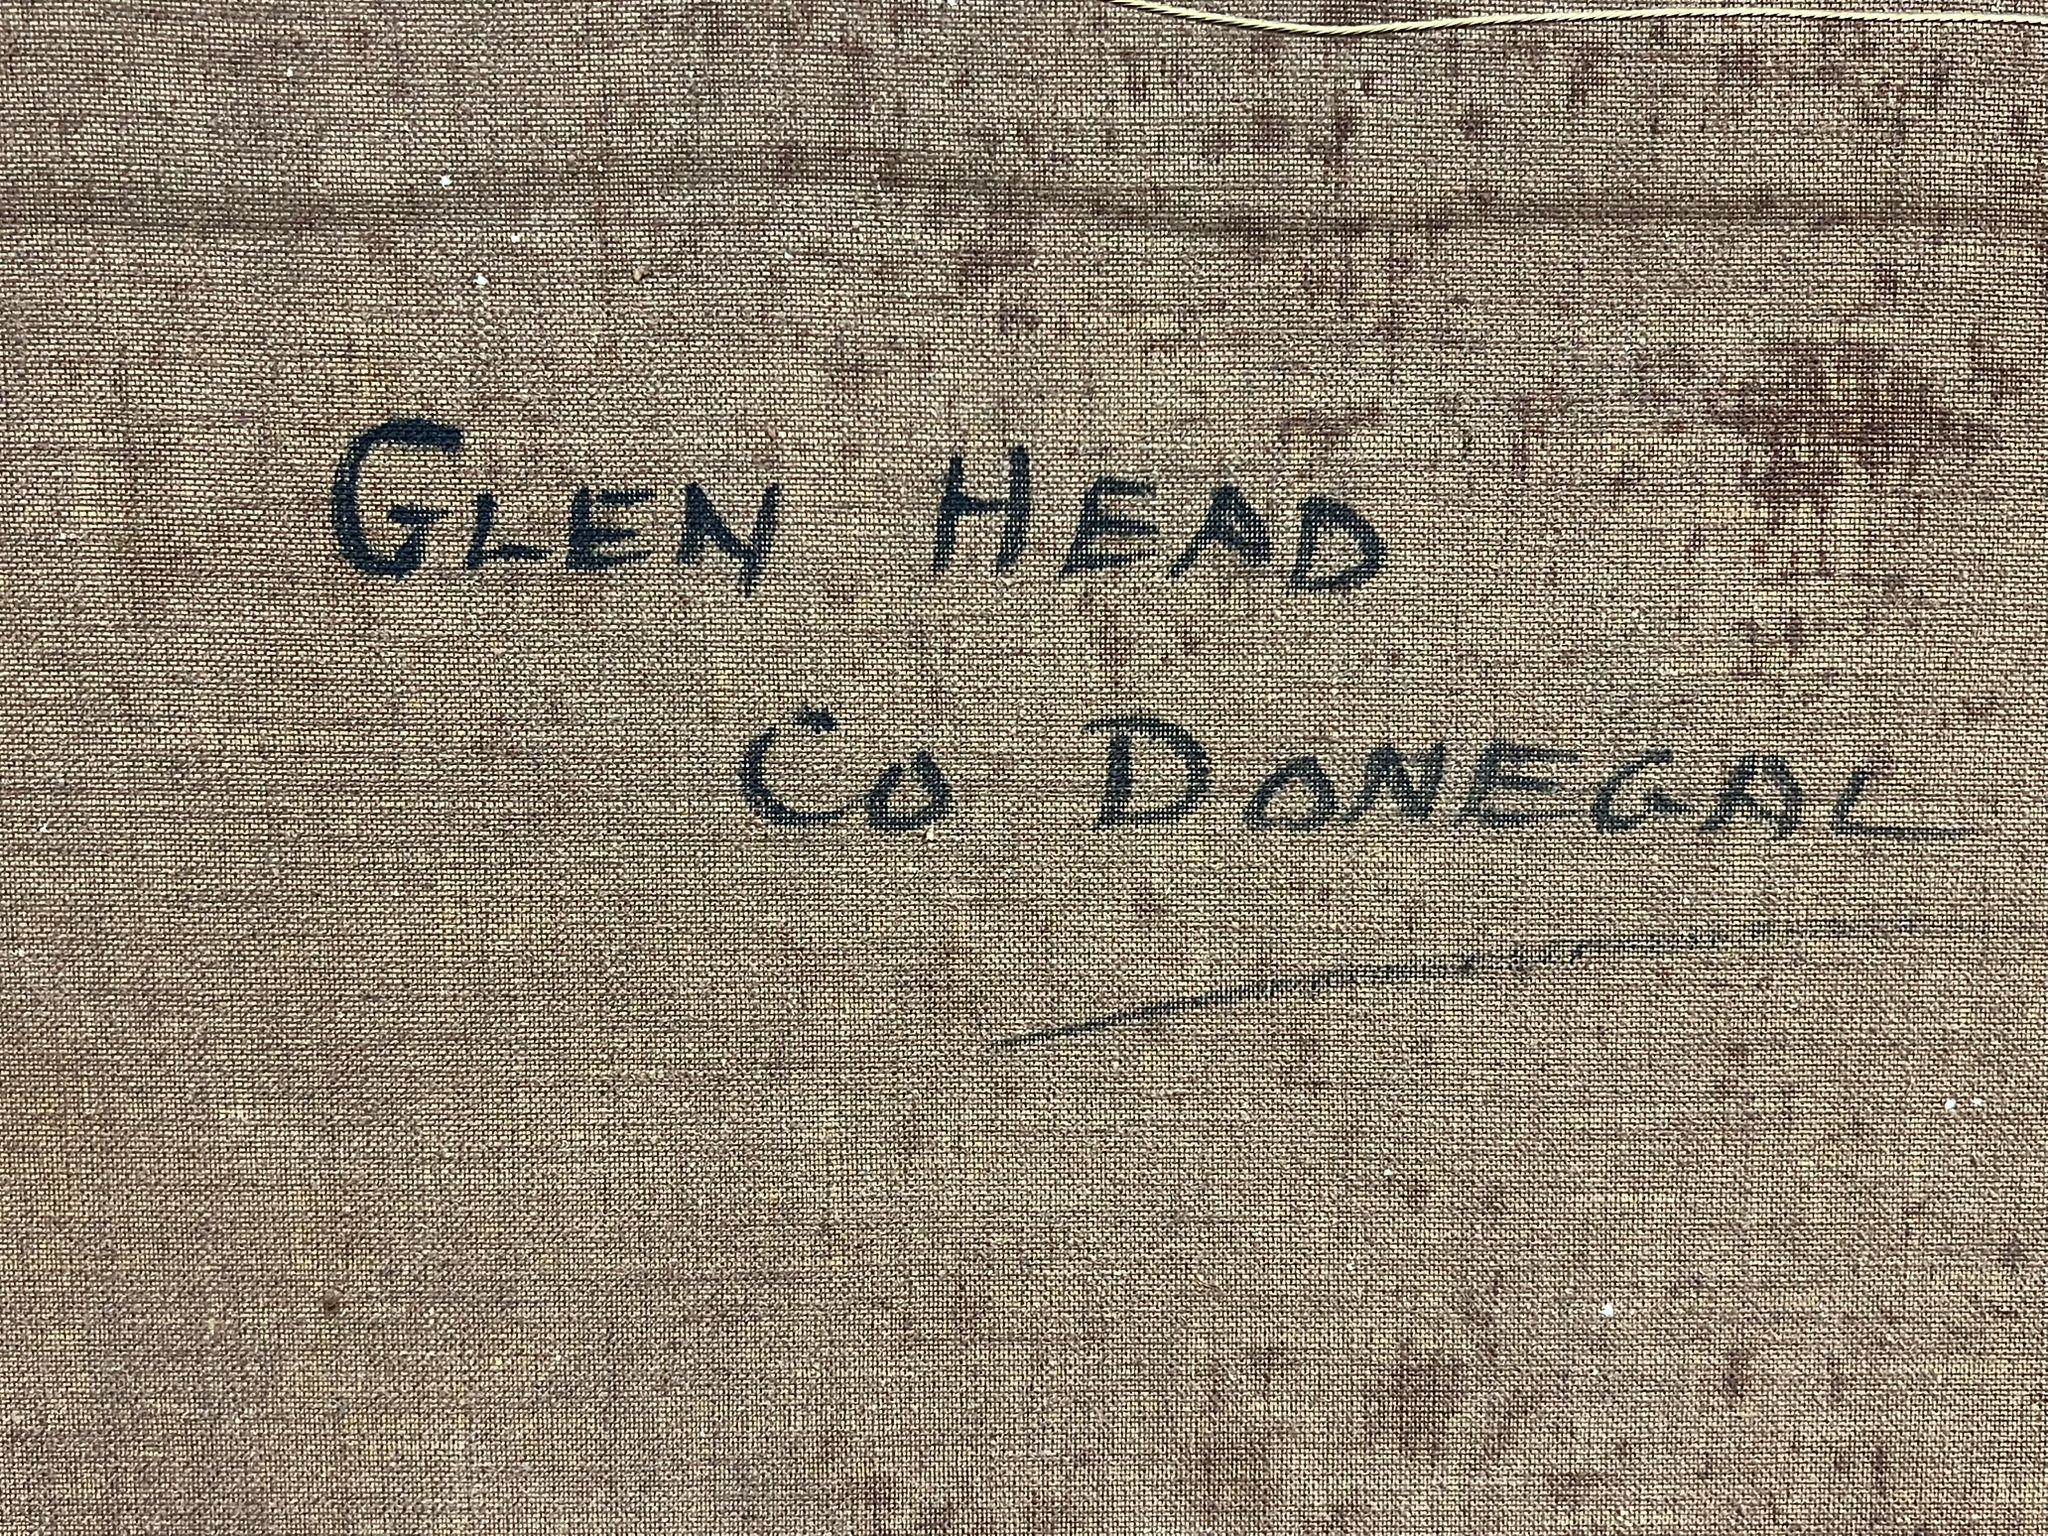 GLEN HEAD
CO DONEGAL